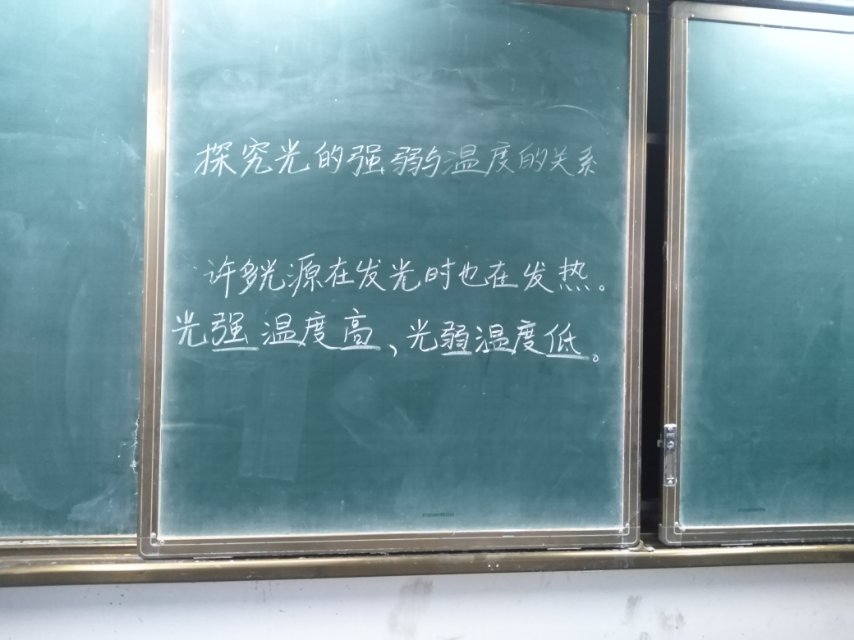 探究光的强弱与温度的关系
许多光源在发光时也在发热。
光强温度高、光弱温度低。